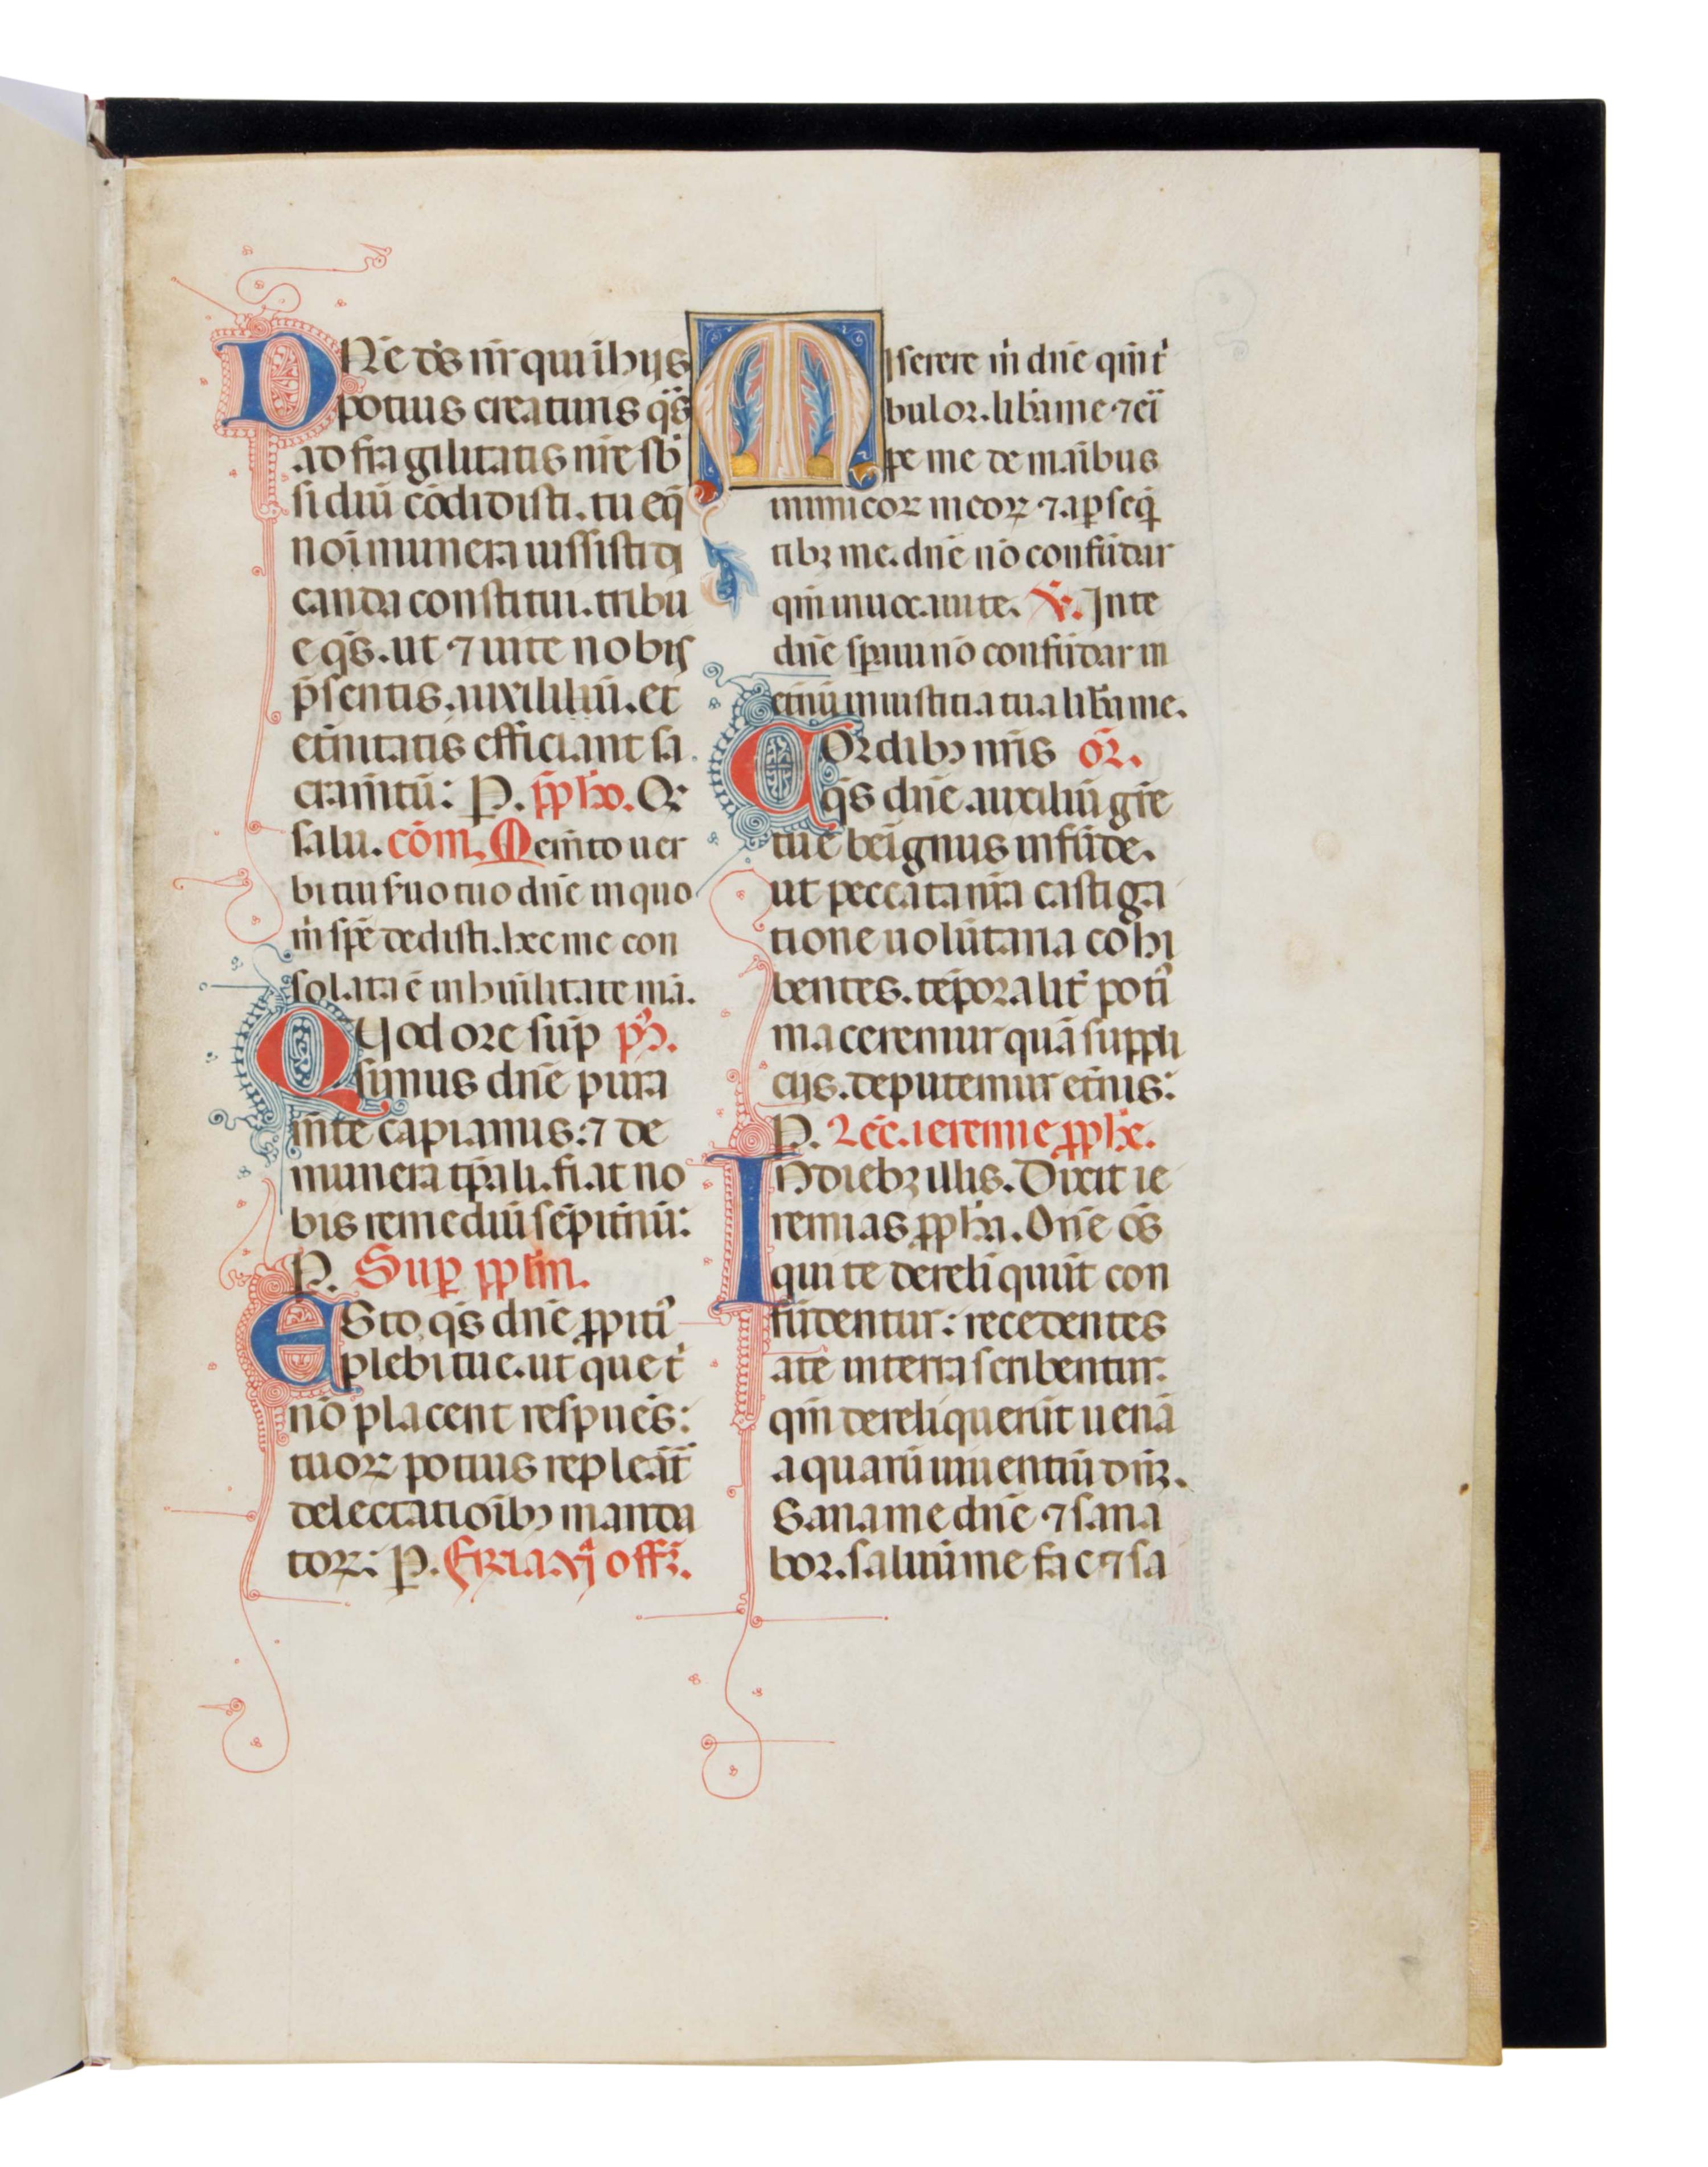 DNe ds nr qui ihijs
potius creaturis qs
ad fragilitatis nre sb
sidiu codidisti. tu eq
noi munera iussisti di
canda constitui. tribu
e qs. ut ⁊ uite nobis
psentis auxiliu. et
etnitatis efficiant sa
cramtu: P. pphō. Or
salu. cōm. Memto uer
bi tui suo tuo dne in quo
m spē dedisti. hec me con
solata ē in huilitate mā.
QUod ore sup ph.
simus dne pura
mte capiamus: ⁊ de
munere tpali. fiat no
bis remediū sēpitnū:
P. Sup pplm.
ESto qs dne ppiti
plebi tue. ut que t
nō placent respues:
tuoꝝ potius repleāt
delectatioibꝰ manda
toꝝ: P. Fria vj offm.
MIserere m dne qm t
bulor. liba me ⁊ ei
pe me de maibus
inimicoꝝ meoꝝ ⁊ a pseq
tibꝫ me. dne nō confūdar
qm inuocaui te. V. In te
dne spaui nō confūdar in
etnū in iustitia tua liba me.
COrdibꝰ nris or.
qs dne auxiliū gre
tue beignus infūde.
ut peccata nra castiga
tione uolūtaria cohi
bentes. tēporalit poti
maceremur quā suppli
cijs. deputemur etnis:
P. Lec. ieremie pphe.
INdiebꝫ illis. Dixit ie
remias ppha. One ds
qui te dereliquūt con
fūdentur: recedentes
ate in terra scribentur.
qm dereliquerūt uenā
aquarū uiuentiū dnꝫ.
Sana me dne ⁊ sana
bor. saluū me fac ⁊ sa